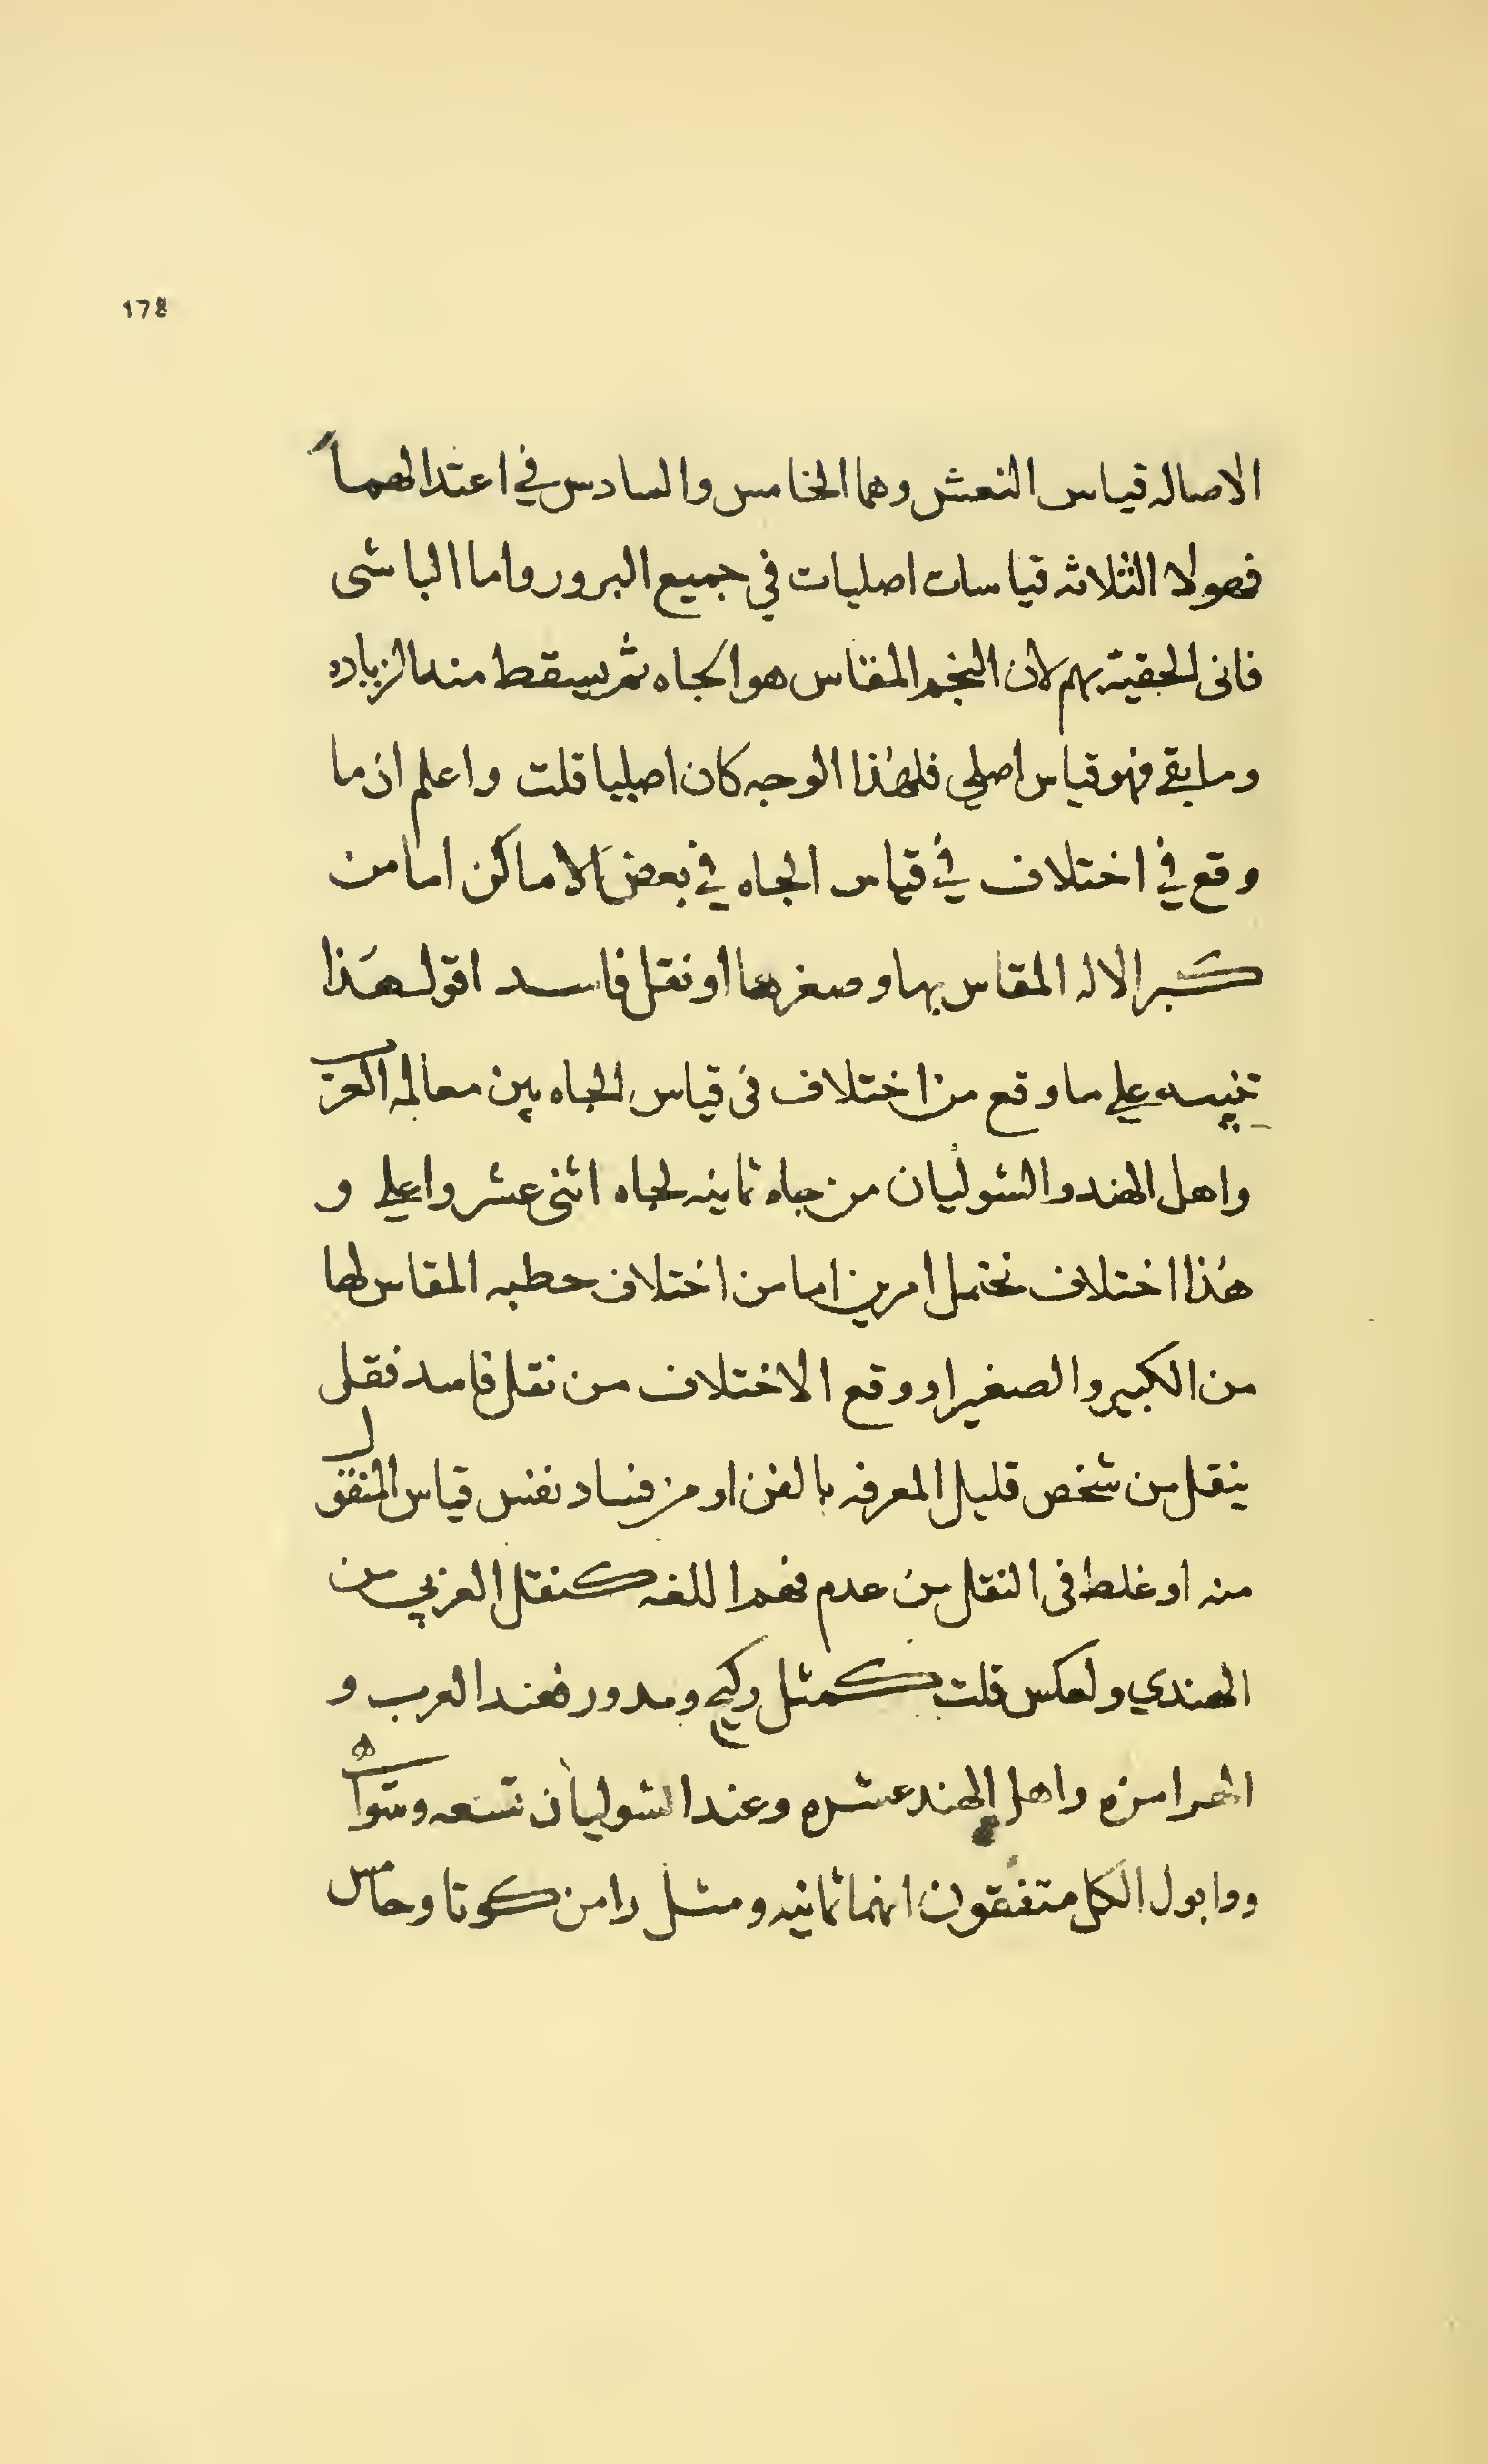 178
الاصاله قياس النعش وهما الخامس والسادس في اعتدالهما
فهولا الثلاثه قياسات اصليات في جميع البرور واما الباشى
فانى الحقيته بهم لان النجم المقاس هو الجاه ثم يسقط منه الزياده
وما بقي فهو قياس اصلي فلهذا الوجه كان اصليا قلت واعلم ان ما
وقع في اختلاف في قياس الجاه في بعض الاماكن اما من
كبر الاله المقاس بها وصغرها او نقل فاسد اقول هذا
تنبيه علي ما وقع من اختلاف فى قياس الجاه بين معالمه العرب
واهل الهند والشوليان من جاه ثمانيه لجاه اثنى عشر واعلي و
هذا اختلاف نحتمل امرين اما من اختلاف حطبه المقاس لها
من الكبير والصغير او وقع الاختلاف من نقل فاسد فقل
ينقل من شخص قليل المعرفه بالفن او من فساد نفس قياس المنقول
منه او غلط فى النقل من عدم فهم اللغه كنقل العربي من
الهندي ولعكس قلت كمثل ركيج ومدور فعند العرب و
الهرامزه واهل الهند عشره وعند الشوليان تسعه وستواه
ووابول الكل متفقون انهما ثمانيه ومثل رامن كوتا وحامس